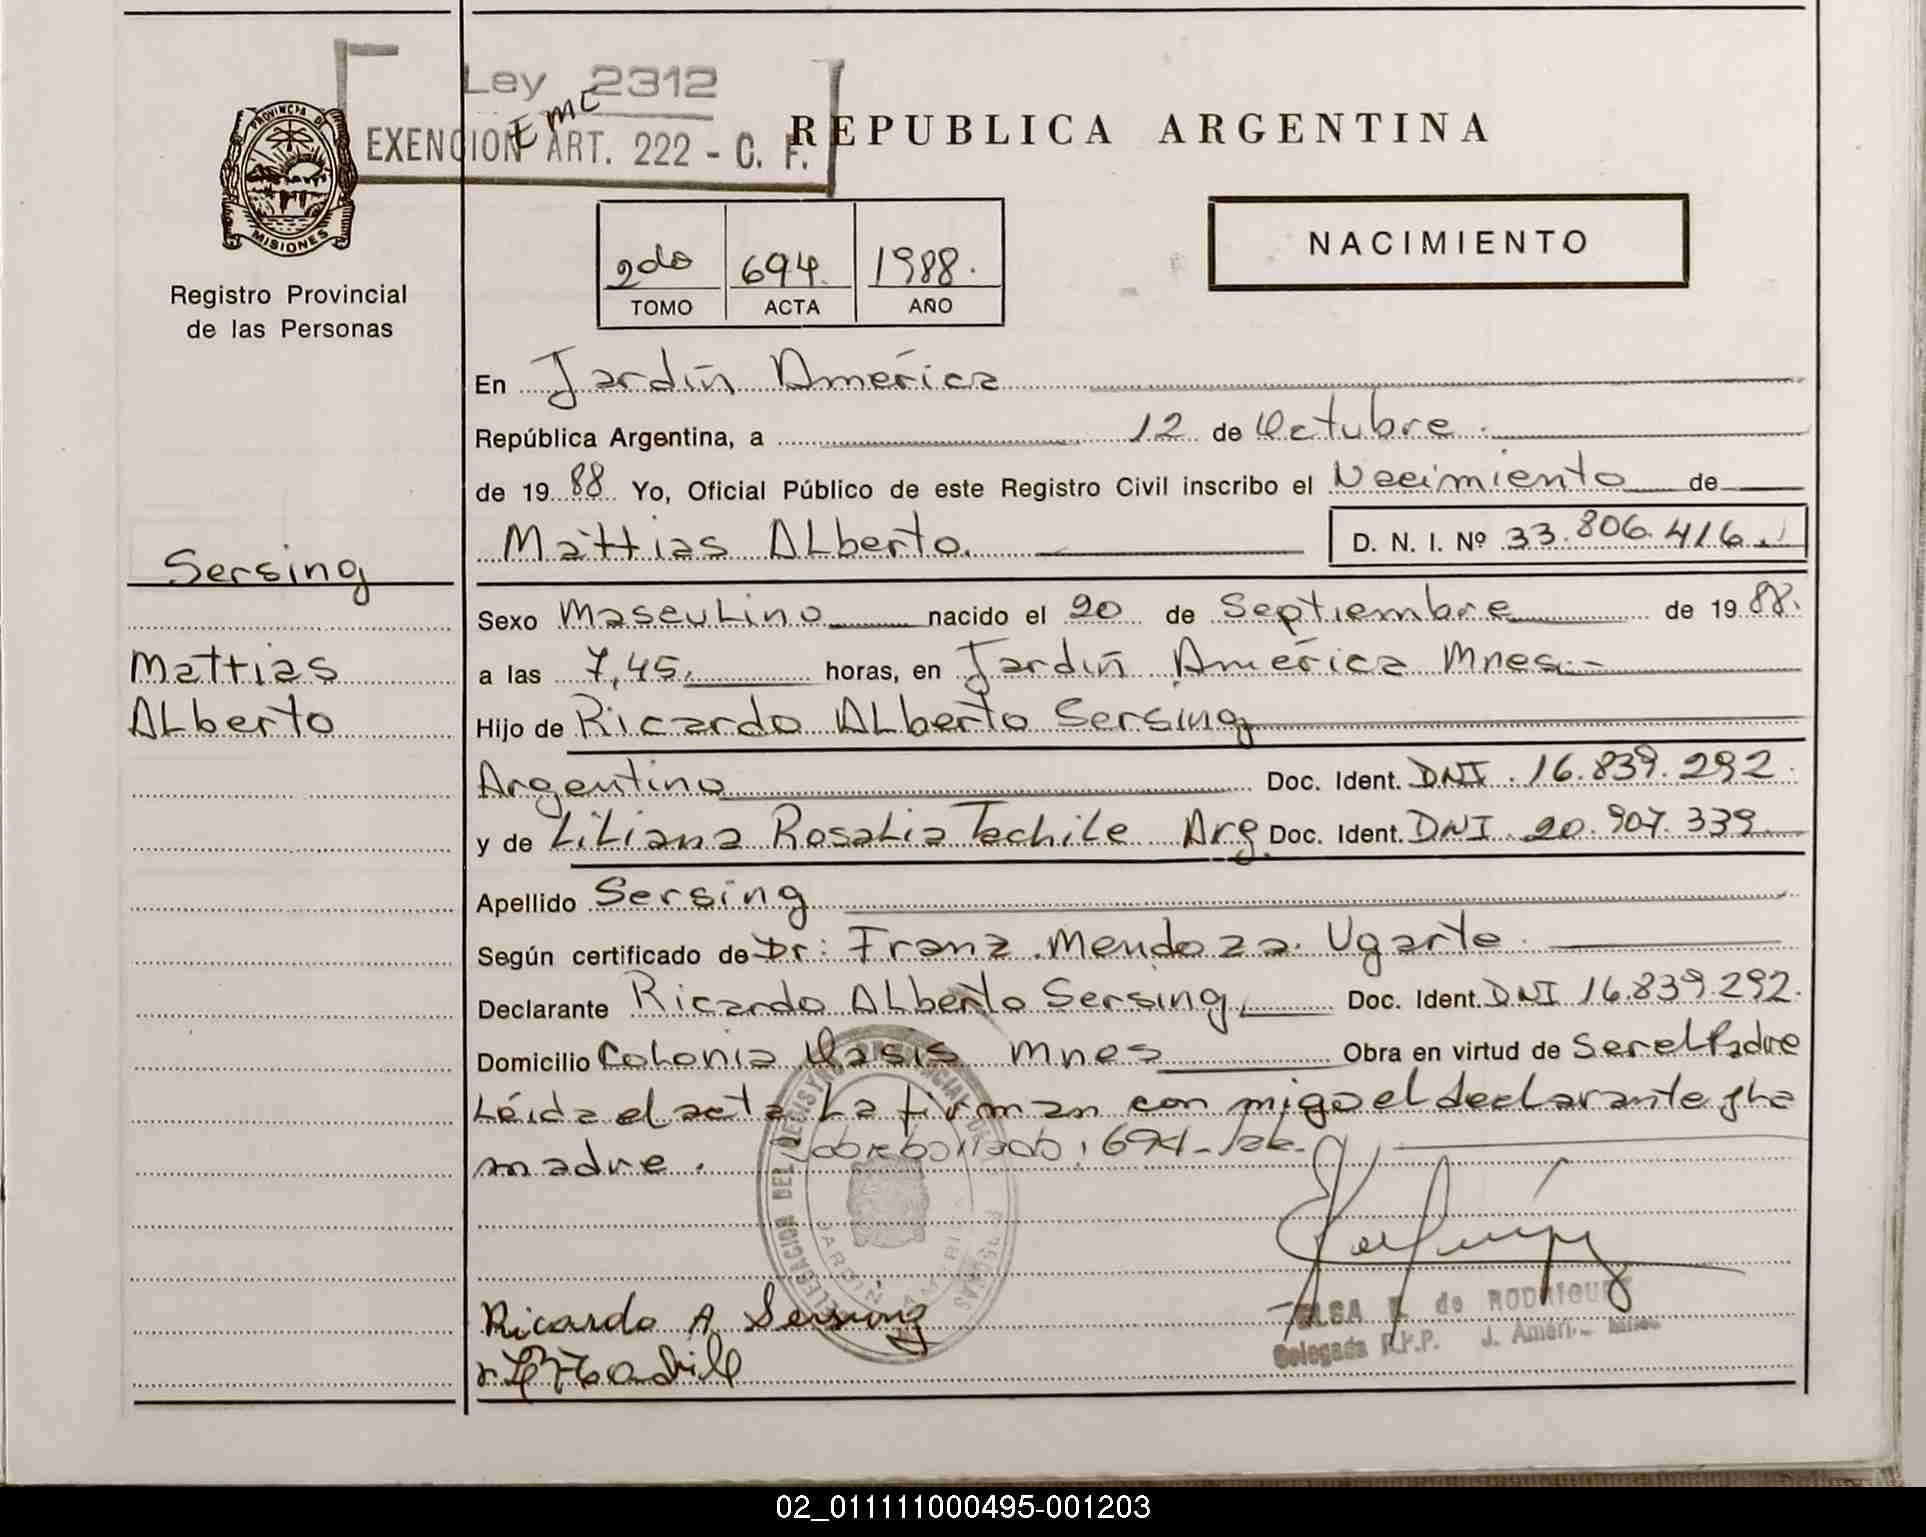 Ley 2312
EMC
EXENCION ART. 222 - C. F.
REPUBLICA ARGENTINA
PROVINCIA DE
MISIONES
Registro Provincial
de las Personas
2do 694. 1988.
TOMO ACTA AÑO
NACIMIENTO
En Jardín América
República Argentina, a 12 de Octubre.
de 1988 Yo, Oficial Público de este Registro Civil inscribo el Nacimiento de
Mattias Alberto. D. N. I. Nº 33.806.416.
Sersing
Mattias
Alberto
Sexo Masculino nacido el 20 de Septiembre de 1988.
a las 7,45. horas, en Jardín América Mnes.-
Hijo de Ricardo Alberto Sersing
Argentino Doc. Ident. DNI. 16.839.292.
y de Liliana Rosalia Techile Arg. Doc. Ident. DNI 20.907.339.
Apellido Sersing
Según certificado de Dr: Franz Mendoza Ugarte.
Declarante Ricardo Alberto Sersing, Doc. Ident. DNI 16.839.292.
Domicilio Colonia Oasis Mnes Obra en virtud de Ser el Padre
Léida el acta La firman con migo el declarante y La
madre. Sobreborrado: 694-
DELEGACION DEL REGISTRO PROVINCIAL DE PERSONAS
JARDIN AMERICA
Ricardo A Sersing
ELSA E. de RODRIGUEZ
Delegada R.P.P. J. Améri. Mnes
02_011111000495-001203